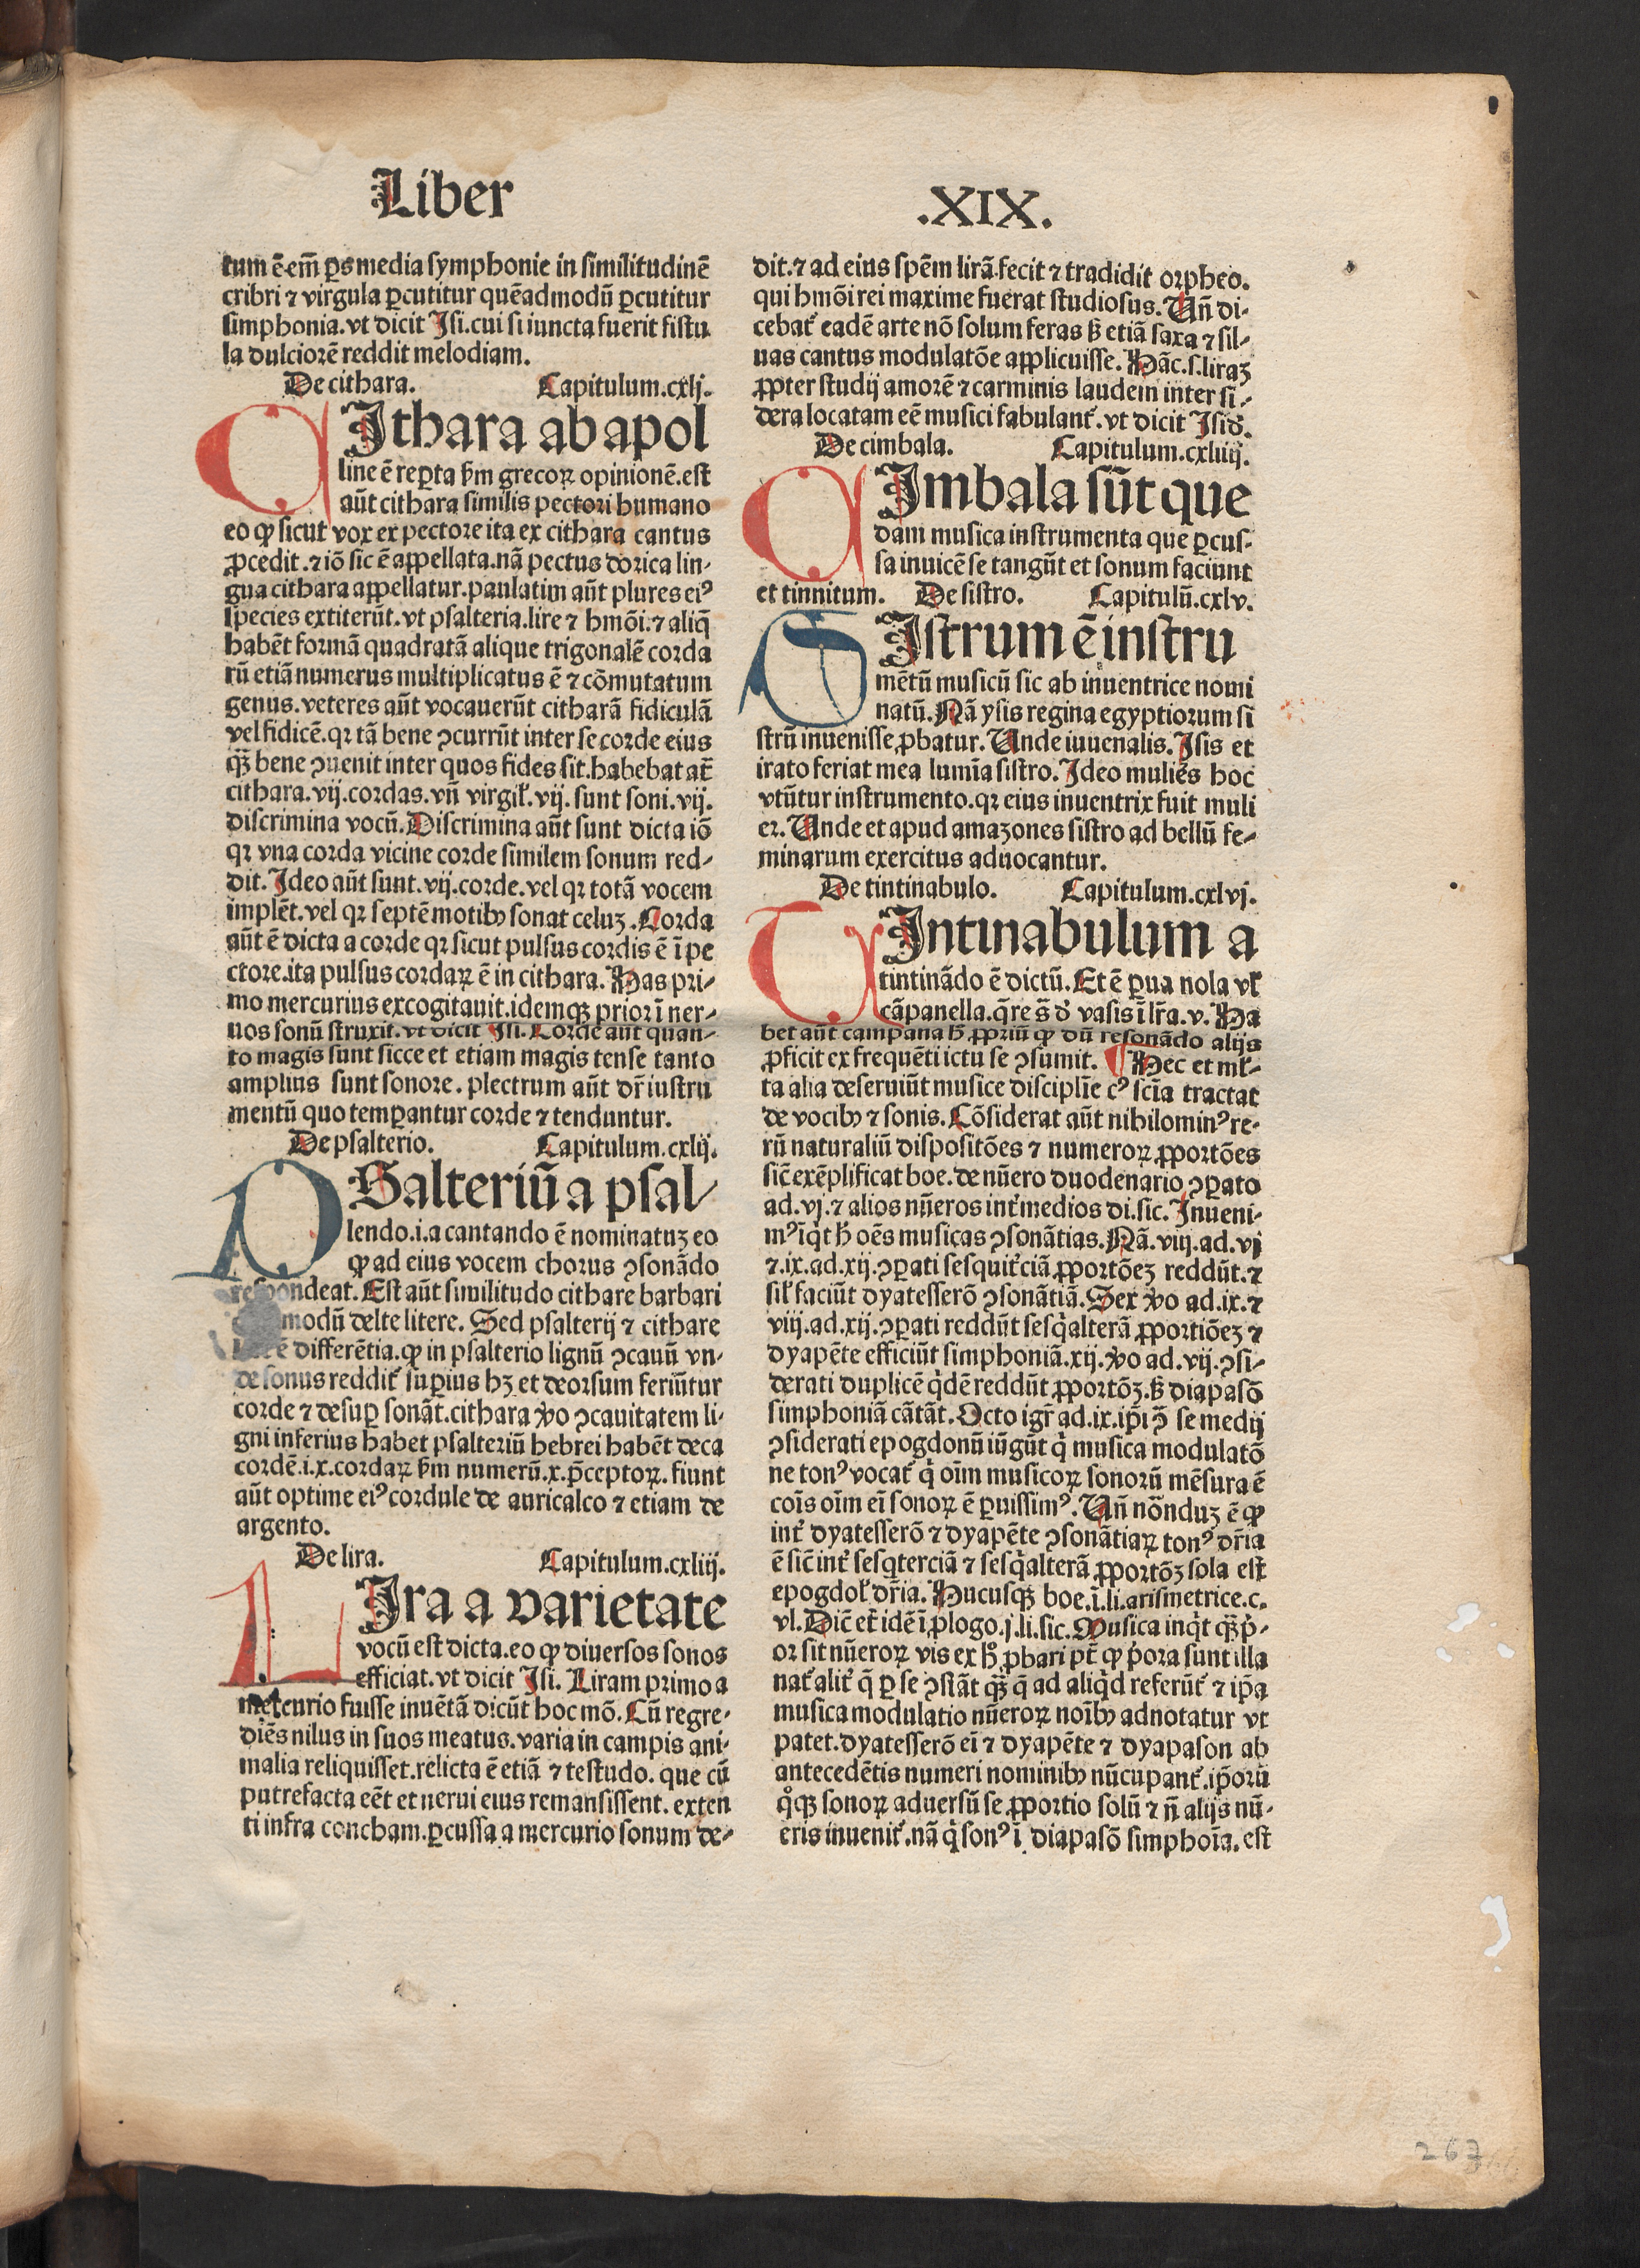 Liber
.XIX.
tum ē.em̄ ꝑs media symphonie in similitudinē
cribri ⁊ virgula ꝑcutitur quēadmodū ꝑcutitur
simphonia.vt dicit Isi.cui si iuncta fuerit fistu
la dulciorē reddit melodiam.
De cithara. Capitulum.cxlj.
CIthara ab apol
line ē reꝑta ẜm grecoꝝ opinionē.est
aūt cithara similis pectori humano
eo ꝙ sicut vox ex pectore ita ex cithara cantus
ꝓcedit.⁊ iō sic ē appellata.nā pectus dorica lin-
gua cithara appellatur.paulatim aūt plures eiꝰ
species extiterūt.vt psalteria.lire ⁊ hmōi.⁊ aliq̄
habēt formā quadratā alique trigonalē corda
rū etiā numerus multiplicatus ē ⁊ cōmutatum
genus.veteres aūt vocauerūt citharā fidiculā
vel fidicē.qꝛ tā bene ꝯcurrūt inter se corde eius
qꝫ̄ bene ꝯuenit inter quos fides sit.habebat at̄
cithara.vij.cordas.vn̄ virgil̛.vij.sunt soni.vij.
discrimina vocū.Discrimina aūt sunt dicta iō
qꝛ vna corda vicine corde similem sonum red-
dit.Ideo aūt sunt.vij.corde.vel qꝛ totā vocem
implēt.vel qꝛ septē motibꝰ sonat celuꝫ.Corda
aūt ē dicta a corde qꝛ sicut pulsus cordis ē ī pe
ctore.ita pulsus cordaꝝ ē in cithara.Has pri-
mo mercurius excogitauit.idemqꝫ prior ī ner-
uos sonū struxit.vt dicit Isi.Corde aūt quan-
to magis sunt sicce et etiam magis tense tanto
amplius sunt sonore.plectrum aūt dr̄ iustru
mentū quo temꝑantur corde ⁊ tenduntur.
De psalterio. Capitulum.cxlij.
PSalteriū a psal-
lendo.i.a cantando ē nominatuꝫ eo
ꝙ ad eius vocem chorus ꝯsonādo
respondeat.Est aūt similitudo cithare barbari
modū delte litere.Sed psalterij ⁊ cithare
ē differētia.ꝙ in psalterio lignū ꝯcauū vn-
de sonus reddit̛ suꝑius hꝫ et deorsum feriūtur
corde ⁊ desuꝑ sonāt.cithara ꝟo ꝯcauitatem li-
gni inferius habet psalteriū hebrei habēt deca
cordē.i.x.cordaꝝ ẜm numerū.x.p̄ceptoꝝ.fiunt
aūt optime eiꝰ cordule de auricalco ⁊ etiam de
argento.
De lira. Capitulum.cxliij.
LIra a varietate
vocū est dicta.eo ꝙ diuersos sonos
efficiat.vt dicit Isi.Liram primo a
mercurio fuisse inuētā dicūt hoc mō.Cū regre-
diēs nilus in suos meatus.varia in campis ani-
malia reliquisset.relicta ē etiā ⁊ testudo.que cū
putrefacta eēt et nerui eius remansissent.exten
ti infra concham.ꝑcussa a mercurio sonum de-
dit.⁊ ad eius spēm lirā fecit ⁊ tradidit orpheo.
qui hmōi rei maxime fuerat studiosus.Vn̄ di-
cebat̛ eadē arte nō solum feras ꝫ etiā saxa ⁊ sil-
uas cantus modulatōe applicuisse.Hāc.s.liraꝫ
ꝓpter studij amorē ⁊ carminis laudem inter si-
dera locatam eē musici fabulant̛.vt dicit Isid̛.
De cimbala. Capitulum.cxliiij.
CImbala sūt que
dam musica instrumenta que ꝑcus-
sa inuicē se tangūt et sonum faciunt
et tinnitum. De sistro. Capitulū.cxlv.
SIstrum ē instru
mētū musicū sic ab inuentrice nomi
natū.Nā ysis regina egyptiorum si
strū inuenisse ꝓbatur.Unde iuuenalis.Isis et
irato feriat mea lumīa sistro.Ideo muliēs hoc
vtūtur instrumento.qꝛ eius inuentrix fuit muli
er.Unde et apud amazones sistro ad bellū fe-
minarum exercitus aduocantur.
De tintinabulo. Capitulum.cxlvj.
TIntinabulum a
tintinādo ē dictū.Et ē ꝑua nola vl̛
cāpanella.q̄re s̄ d̛ vasis ī lr̄a.v.Ha
bet aūt campana h̄ ꝓpriū ꝙ dū resonādo alijs
ꝓficit ex frequēti ictu se ꝯsumit.¶Hec et ml̛-
ta alia deseruiūt musice disciplīe cꝰ scīa tractat
de vocibꝰ ⁊ sonis.Cōsiderat aūt nihilominꝰ re-
rū naturaliū dispositōes ⁊ numeroꝝ ꝓportōes
sic̄ exēplificat boe.de nūero duodenario ꝯꝑato
ad.vj.⁊ alios nūeros int̛medios di.sic.Inueni-
mꝰ īq̄t h̄ oēs musicas ꝯsonātias.Nā.viij.ad.vj
⁊.ix.ad.xij.ꝯꝑati sesquit̛ciā ꝓportōeꝫ reddūt.⁊
sil̛ faciūt dyatesserō ꝯsonātiā.Sex ꝟo ad.ix.⁊
viij.ad.xij.ꝯꝑati reddūt sesq̄alterā ꝓportiōeꝫ ⁊
dyapēte efficiūt simphoniā.xij.ꝟo ad.vij.ꝯsi-
derati duplicē q̄dē reddūt ꝓportōꝫ.ꝫ diapasō
simphoniā cātāt.Octo igr̄ ad.ix.ip̄i ꝯ̄ se medij
ꝯsiderati epogdonū iūgūt q̄ musica modulatō
ne tonꝰ vocat̛ q̄ oīm musicoꝝ sonorū mēsura ē
coīs oīm eī sonoꝝ ē ꝑuissimꝰ.Vn̄ nōnduꝫ ē ꝙ
int̛ dyatesserō ⁊ dyapēte ꝯsonātiaꝝ tonꝰ dr̄ia
ē sic̄ int̛ sesq̄terciā ⁊ sesq̄alterā ꝓportōꝫ sola est
epogdol̛ dr̄ia.Hucusqꝫ boe.ī.li.arismetrice.c.
vl.Dic̄ et̄ idē ī ꝓlogo.j.li.sic.Musica inq̄t qꝫ̄ p̛-
or sit nūeroꝝ vis ex hͦ ꝓbari pt̄ ꝙ p̛ora sunt illa
nat̛alit̛ q̄ ꝑ se ꝯstāt qꝫ̄ q̄ ad aliq̄d referūt̛ ⁊ ip̄a
musica modulatio nūeroꝝ noībꝰ adnotatur vt
patet.dyatesserō eī ⁊ dyapēte ⁊ dyapason ab
antecedētis numeri nominibꝰ nūcupant̛.ip̄orū
qͦqꝫ sonoꝝ aduersū se ꝓportio solū ⁊ n̄ alijs nū-
eris inuenit̛.nā q̄ sonꝰ ī diapasō simphoīa.est
267